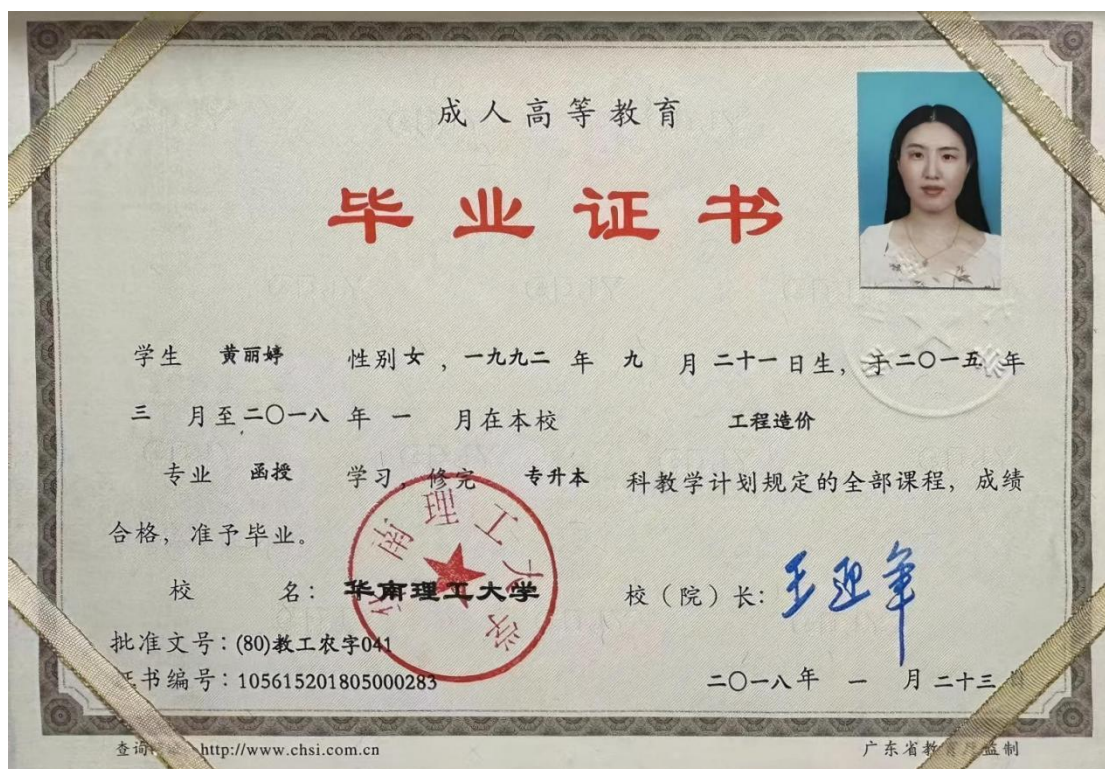 成人高等教育
毕业证书
学生 黄丽婷 性别 女 ，一九九二 年 九 月 二十一 日生，于二〇一五 年
三 月至 二〇一八 年 一 月在本校 工程造价
专业 函授 学习，修完 专升本 科教学计划规定的全部课程，成绩
合格，准予毕业。
校 名： 华南理工大学
华南理工大学
校（院）长：王迎军
批准文号：(80)教工农字041
书编号：105615201805000283
二〇一八 年 一 月 二十三
查询 http://www.chsi.com.cn
广东省教 监制